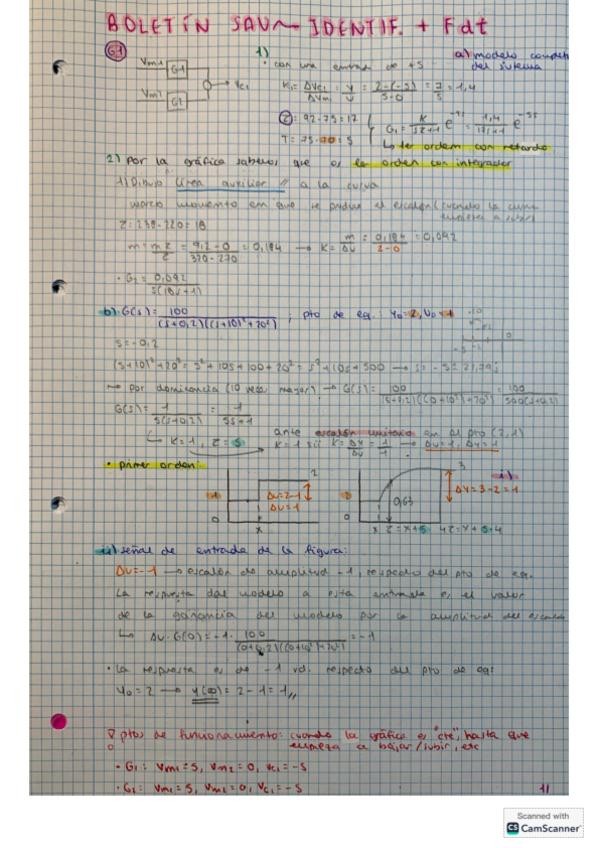 BOLETÍN SAUN IDENTIF. + Fdt
G1
Vm1
G1
Vm2
G2
Vc1
1)
· con una entrada de +5
a) modelo completo
del sistema
K1 = ΔVc1/ΔVm1 = y/u = 2-(-5)/5-0 = 7/5 = 1,4
②: 92-75=17
T = 75-70 = 5
G1 = K/(ζs+1) e = 1,4/(17s+1) e^-5s
↳ 1er orden con retardo
2) Por la gráfica sabemos que es 1er orden con integrador
1) Dibujo línea auxiliar // a la curva
marco momento en que se produce el escalón (cuando la curva
empieza a subir)
ζ = 238-220 = 18
m = = 9,2-0/320-270 = 0,184 → K = m/Δu = 0,184/2-0 = 0,092
· G2 = 0,092/s(18s+1)
b) G(s) = 100/(s+0,2)((s+10)²+20²) ; pto de eq.: Y0=2, U0=1
s = -0,2
(s+10)²+20² = s²+10s+100+20² = s²+10s+500 → s = -5±
→ por dominancia (10 veces mayor) → G(s) = 100/(s+0,2)((0+10)²+20²) = 100/500(s+0,2)
G(s) = 1/5(s+0,2) = 1/5s+1
↳ K=1, ζ=5
ante escalón unitario en el pto (2,1)
K=1 si K = Δy/Δu = 1/1 → Δu=1, Δy=1
· primer orden:
1
0
x
2
Δu=2-1
Δu=1
2
0
0,63
3
i)
Δy=3-2=1
x ζ=x+5 4ζ=x+5·4
ii) señal de entrada de la figura:
Δu=-1 → escalón de amplitud -1, respecto del pto de eq.
La respuesta del modelo a esta entrada es el valor
de la ganancia del modelo por la amplitud del escalón
↳ Δu·G(0) = -1 · 100/(0+0,2)((0+10)²+20²) = -1
· La respuesta es de -1 ud. respecto del pto de eq:
Y0=2 → y(∞) = 2-1 = 1,,
ptos de funcionamiento: cuando la gráfica es "cte", hasta que
empieza a bajar/subir, etc
· G1: Vm1=5, Vm2=0, Vc1=-5
· G2: Vm1=5, Vm2=0, Vc1=-5
Scanned with
CS CamScanner